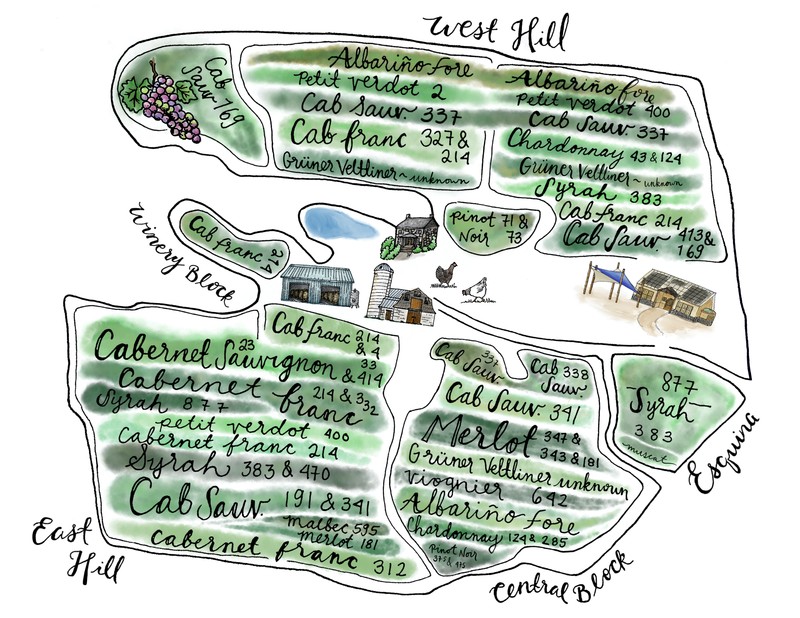 West Hill
Cab
Sauv 169
Albariño fore
Petit verdot 2
Cab Sauv. 337
Cab franc 327 &
214
Grüner Veltliner ~ unknown
Albariño fore
Petit verdot 400
Cab Sauv. 337
Chardonnay 43 & 124
Grüner Veltliner ~ unknown
Syrah 383
Cab franc 214
Cab Sauv 413 &
169
Pinot 71 &
Noir 73
Winery Block
Cab franc 214
Cab franc 214
& 4
Cabernet Sauvignon 23
33
& 414
Cabernet franc 214 & 332
Syrah 877
petit verdot 400
Cabernet franc 214
Syrah 383 & 470
Cab Sauv. 191 & 341
Malbec 595
Merlot 181
Cabernet franc 312
East
Hill
Cab 337
Sauv.
Cab 338
Sauv.
Cab Sauv. 341
Merlot 347 &
343 & 181
Grüner Veltliner unknown
Viognier 642
Albariño fore
Chardonnay 124 & 285
Pinot Noir
Central Block
877
Syrah
383
muscat
Esquina